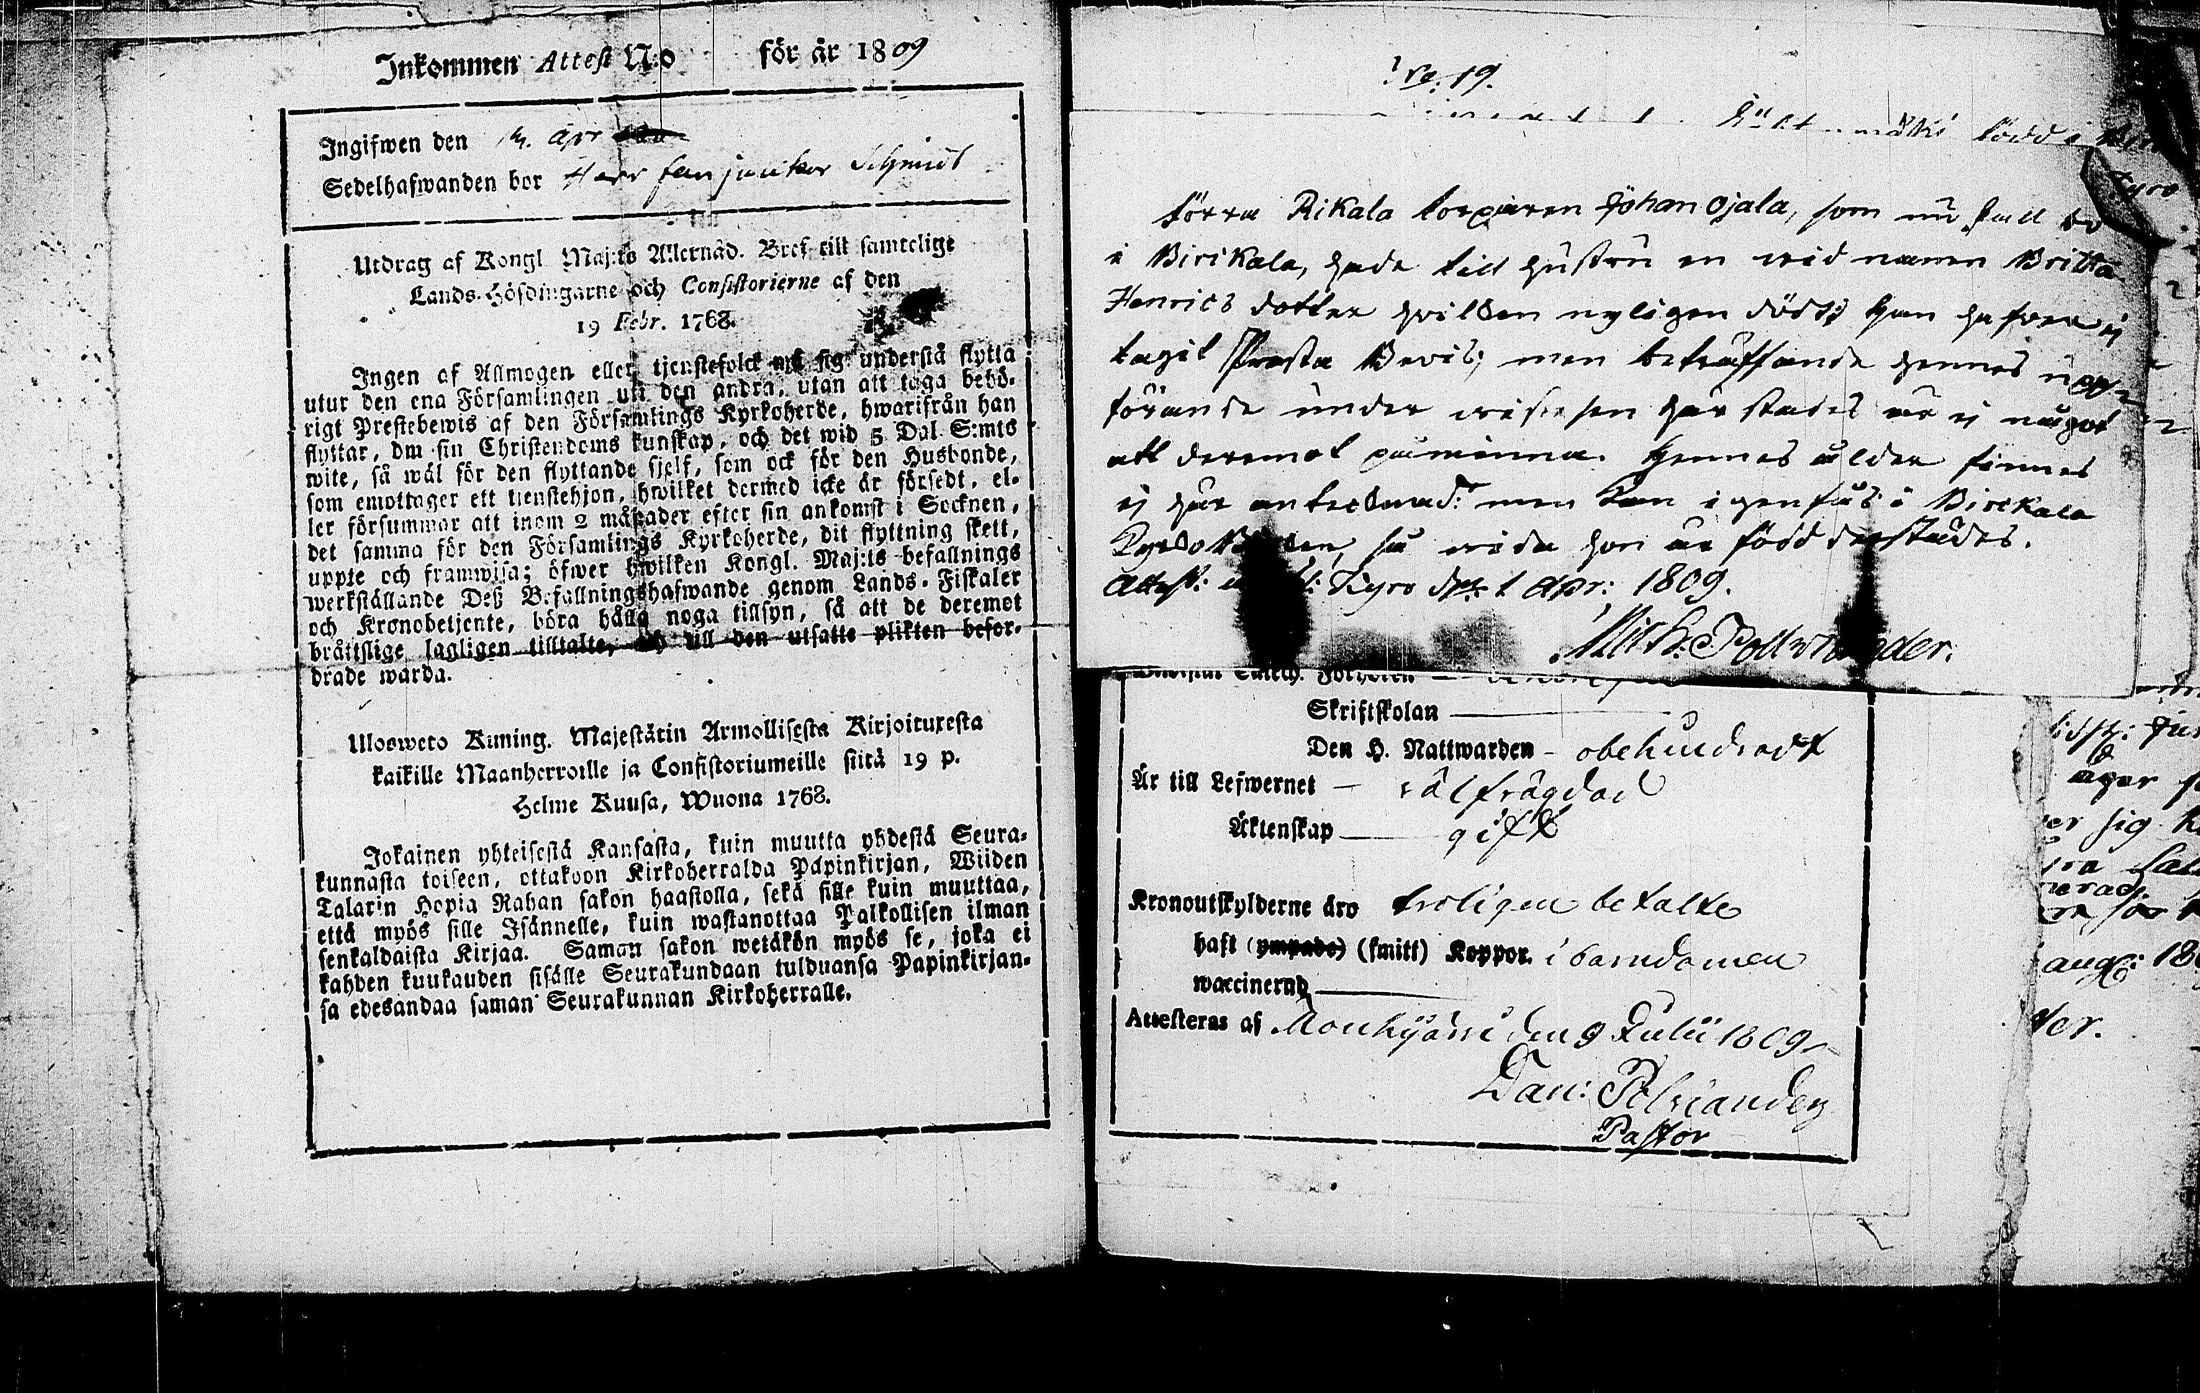 Inkommen Attest N:o för år 1809
Ingifwen den 14. Apr
Sedelhafwanden bor Herr fanjunkor Schmidt
Utdrag af Kongl Maj:ts Allernåd. Bref till samtelige
Lands-Höfdingarne och Consistorierne af den
19 Febr. 1768.
Ingen af Allmogen eller tjenstefolck må sig understå flytta
utur den ena Församlingen uti den andra, utan att taga behö-
rigt Prestebewis af den Församlings Kyrkoherde, hwarifrån han
flyttar, om sin Christendoms kunskap, och det wid 5 Dal. S:mts
wite, så wäl för den flyttande sjelf, som ock för den Husbonde,
som emottager ett tienstehjon, hwilket dermed icke är försedt, el-
ler försummar att inom 2 månader efter sin ankomst i Socknen,
det samma för den Församlings Kyrkoherde, dit flyttning skett,
uppte och framwisa; öfwer hwilken Kongl. Maj:ts befallnings
werkställande Deß Befallningshafwande genom Lands-Fiskaler
och Kronobetjente, böra hålla noga tillsyn, så att de deremot
bråttslige lagligen tilltalte, och till den utsatte plikten befor-
drade warda.
Ulosweto Kuning. Majestätin Armollisesta Kirjoituresta
kaikille Maanherroille ja Consistoriumeille siitä 19 p.
Helme Kuusa, Wuona 1768.
Jokainen yhteisestä Kansasta, kuin muutta yhdestä Seura-
kunnasta toiseen, ottakoon Kirkoherralda Papinkirjan, Wiiden
Talarin Hopia Rahan sakon haastolla, sekä sille kuin muuttaa,
että myös sille Isännelle, kuin wastanottaa Palkollisen ilman
senkaldaista Kirjaa. Saman sakon wetäkön myös se, joka ei
kahden kuukauden sisälle Seurakundaan tulduansa Papinkirjan-
sa edesandaa saman Seurakunnan Kirkoherralle.
No. 19.
född i
Kyro
förra Rikala torparen Johan Ojala, som nu skall bo
i Birikala, hade till hustru en wid namn Britta
Henrics dotter hvilken nyligen dödt; han hafver ej
tagit Prästa Bevis; men beträffande hennes upp-
förande under vistelsen här städes är ej något
att deremot påminna. Hennes ålder finnes
ej här antecknad: men kan igenfås i Birckala
Kyrko Boken, så wida hon är född derstädes.
Attest: Kyro d. 1 Apr: 1809.
Skriftskolan
Den H. Nattwarden - obehindradt
Är till Lefwernet - välfrägdad
Äktenskap gift
Kronoutskylderne äro troligen betalte
haft (ympade) (smitt) Koppor. i barndomen
waccinerad
Attesteras af Mouhijärvi den 9 Julii 1809
Dan: Polviander
Pastor
äger
er sig
aug: 180
ter.